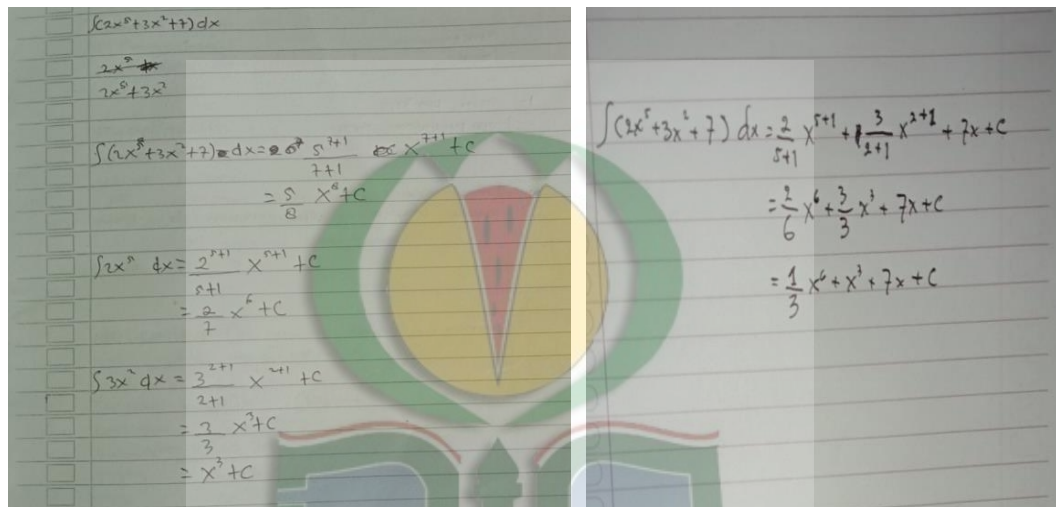 ∫(2x⁵+3x²+7) dx
2x⁵ dx
2x⁵+3x²
∫(2x⁵+3x²+7) dx = 5⁷⁺¹/7+1 x⁷⁺¹ + C
= 5/8 x⁸+C
∫2x⁵ dx = 2⁵⁺¹/5+1 x⁵⁺¹ + C
= 2/7 x⁶ + C
∫3x² dx = 3²⁺¹/2+1 x²⁺¹ + C
= 3/3 x³+C
= x³+C
∫(2x⁵+3x²+7) dx = 2/5+1 x⁵⁺¹ + 3/2+1 x²⁺¹ + 7x+C
= 2/6 x⁶ + 3/3 x³ + 7x+C
= 1/3 x⁶ + x³ + 7x + C